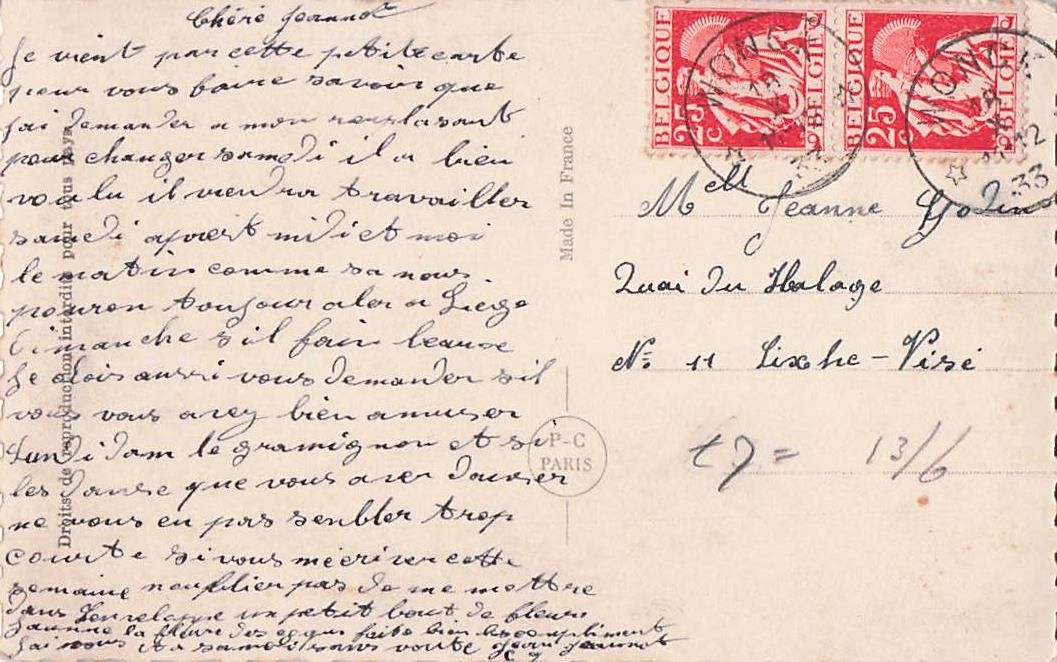 Chérie Jeannot
Je vient par cette petite carte
pour vous faire savoir que
j'ai demander a mon remplasant
pour changer samedi il a bien
voulu il viendra travailler
samedi aprest midi et moi
le matin comme sa nous
pouron toujour aler a Liége
Dimanche s'il fair beause
Je dois aussi vous demander s'il
vous vous avez bien amuser
Lundi dam le gramignon et si
les danse que vous aver danser
ne vous en pas senbler trop
courte si vous mécriver cette
semaine noublier pas de me mettre
dans lenveloppe un petit bout de fleure
jaunne la fleure des
faite bien les compliment
a samedi sans voute Jeannot
Droits de reproduction interdits pour tous pays.
Made In France
P-C
PARIS
BELGIQUE
25c
BELGIË
BELGIQUE
25c
BELGIË
WONCK
18
33
WONCK
18
12
33
Mlle Jeanne
Quai du Halage
No 11 Lixhe - Visé
t7 = 13/6